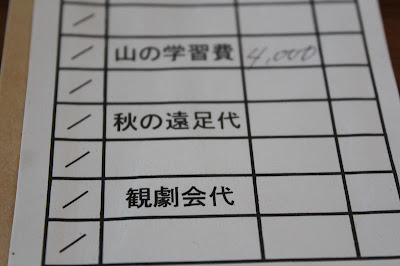 /
/ 山の学習費 4,000
/
/ 秋の遠足代
/
/ 観劇会代
/